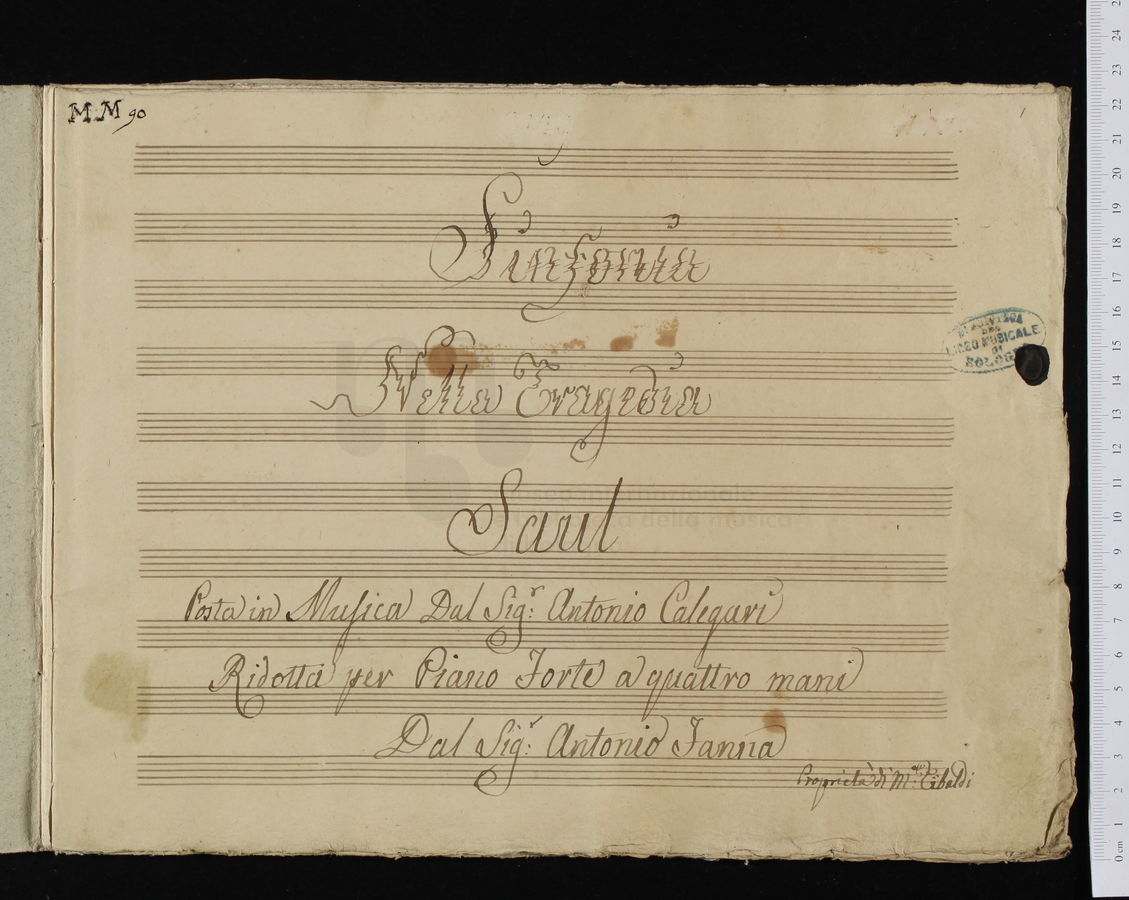 M.M 90
1
Sinfonia
Nella Tragedia
Saul
Posta in Musica Dal Sig.r Antonio Calegari
Ridotta per Piano Forte a quattro mani
Dal Sig.r Antonio Fanna
Proprietà di M. Tibaldi
BIBLIOTECA
DEL
LICEO MUSICALE
DI
BOLOGNA
museo internazionale
e biblioteca della musica
24
23
22
21
20
19
18
17
16
15
14
13
12
11
10
9
8
7
6
5
4
3
2
1
0 cm